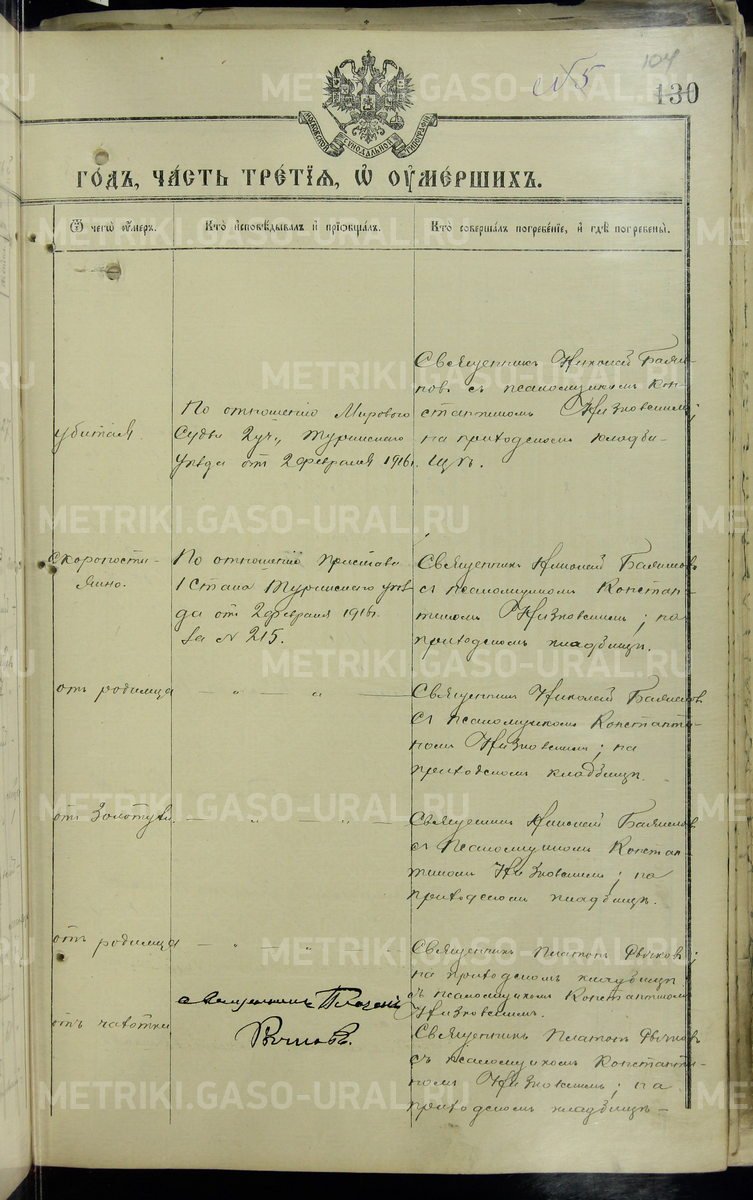 № 5
104
130
МОСКОВСКОЙ СѴНОДАЛЬНОЙ ТИПОГРАФІИ
ГОДЪ, ЧАСТЬ ТРЕТІЯ, Ѡ ОУМЕРШИХЪ.
Ѿ чегѡ оумеръ.
Кто исповѣдывалъ и пріобщалъ.
Кто совершалъ погребеніе, и гдѣ погребены.
убитая.
По отношенію Мирового
Судьи 2 уч., Туринскаго
уѣзда от 2 февраля 1916 г.
Священникъ Николай
съ псаломщикомъ Кон-
стантиномъ Низковскимъ;
на приходскомъ кладби-
щѣ.
скоропости-
жно.
По отношенію Пристава
1 Стана Туринскаго уѣз-
да отъ 2 февраля 1916 г.
за № 215.
Священникъ Николай
съ псаломщикомъ Констан-
тиномъ Низковскимъ; на
приходскомъ кладбищѣ.
отъ родимца
— „ — „ —
Священник Николай
съ псаломщикомъ Константи-
номъ Низковскимъ; на
приходскомъ кладбищѣ.
от золотухи.
— „ — „ —
Священник Николай
съ Псаломщикомъ Констан-
тиномъ Низковскимъ; на
приходскомъ кладбищѣ.
отъ родимца
— „ — „ —
Священникъ Платонъ Рычковъ;
на приходскомъ кладбищѣ
съ псаломщикомъ Константиномъ
Низковскимъ.
Священникъ Платонъ
Рычковъ.
отъ чахотки
Священникъ Платонъ Рычков
съ псаломщикомъ Константи-
номъ Низковскимъ; на
приходскомъ кладбищѣ —
METRIKI.GASO-URAL.RU